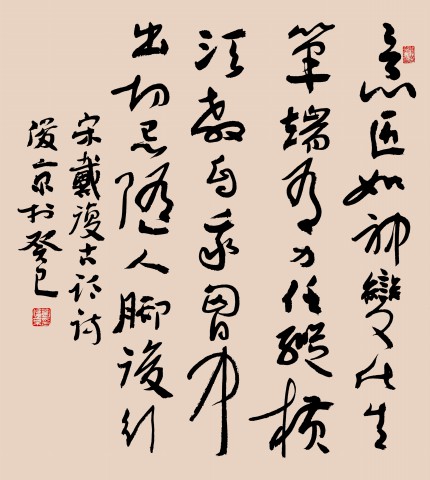 意匠如神變化生
筆端有力任縱橫
須教自我胸中
出切忌隨人脚後行
宋戴復古論詩
於癸巳